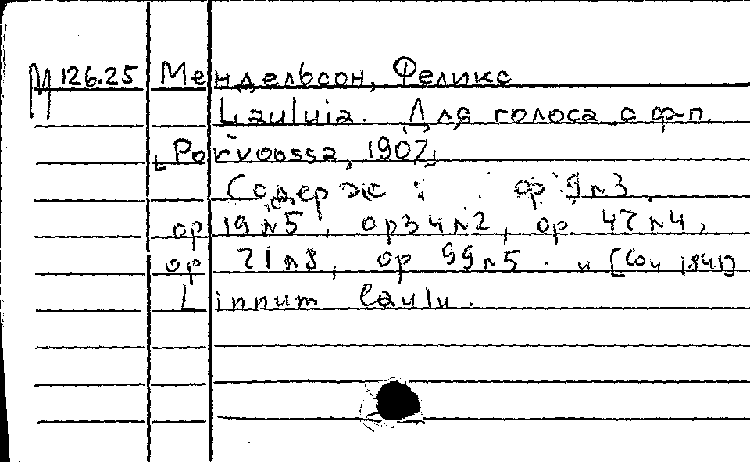 М 126.25 Мендельсон, Феликс
Lauluja. Для голоса с ф-п.
[Porvoossa, 1907]
Содерж : ор 9 № 3,
ор 19 № 5, ор 34 № 2, ор. 47 № 4,
ор 71 № 8, ор 99 № 5. и [Соч 1841]
Linnum laulu.